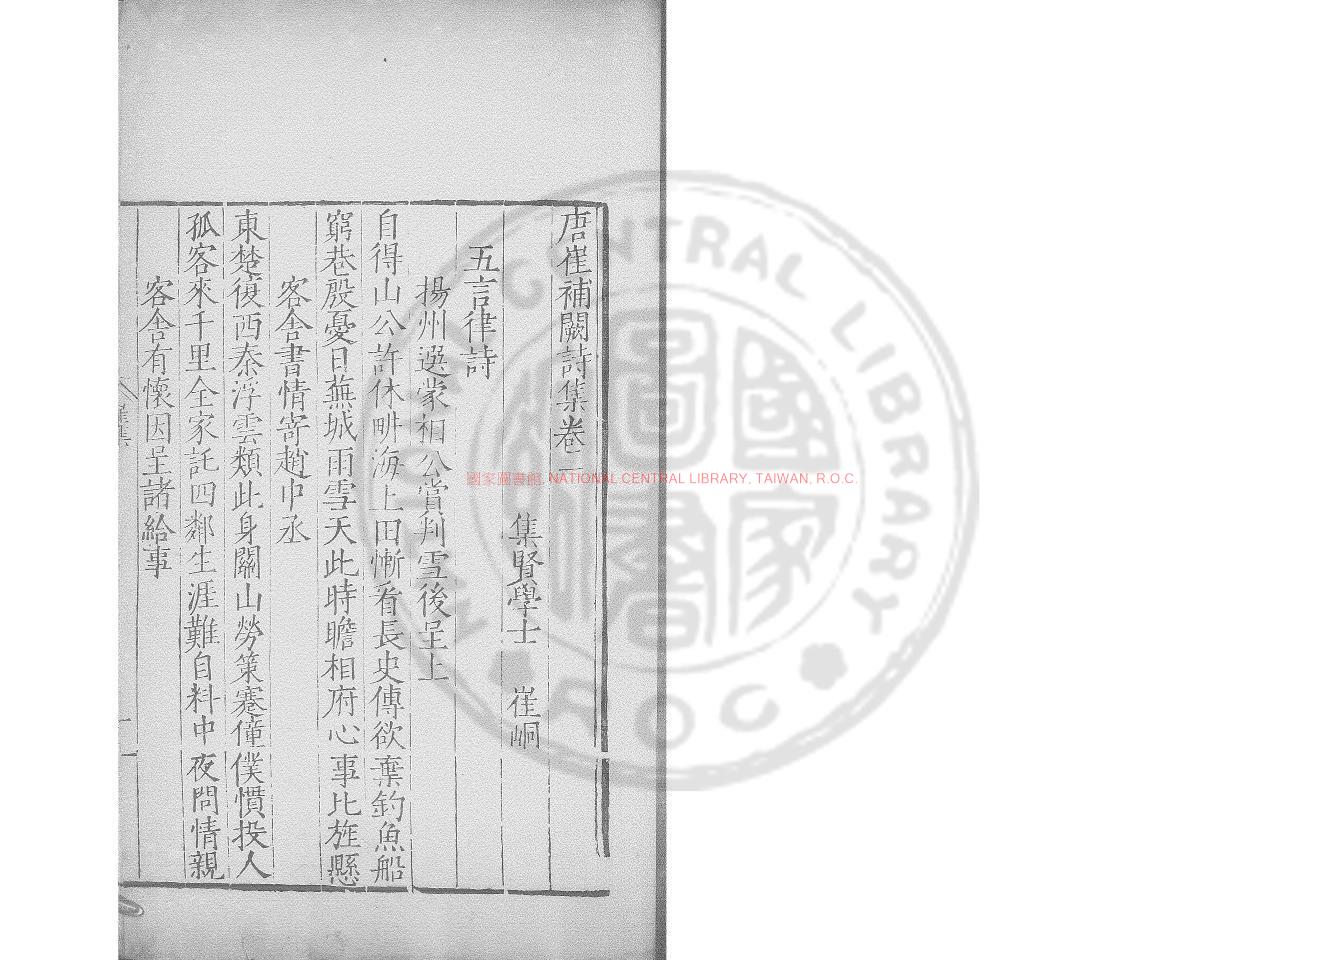 唐崔補闕詩集卷二
集賢學士　崔峒
五言律詩
揚州選蒙相公賞判雪後呈上
自得山公許休畊海上田慚看長史傳欲棄釣魚船
窮巷殷憂日蕪城雨雪天此時瞻相府心事比旌懸
客舍書情寄趙中丞
東楚復西秦浮雲類此身關山勞策蹇僮僕慣投人
孤客來千里全家託四鄰生涯難自料中夜問情親
客舍有懷因呈諸給事
國家圖書館, NATIONAL CENTRAL LIBRARY, TAIWAN, R.O.C.